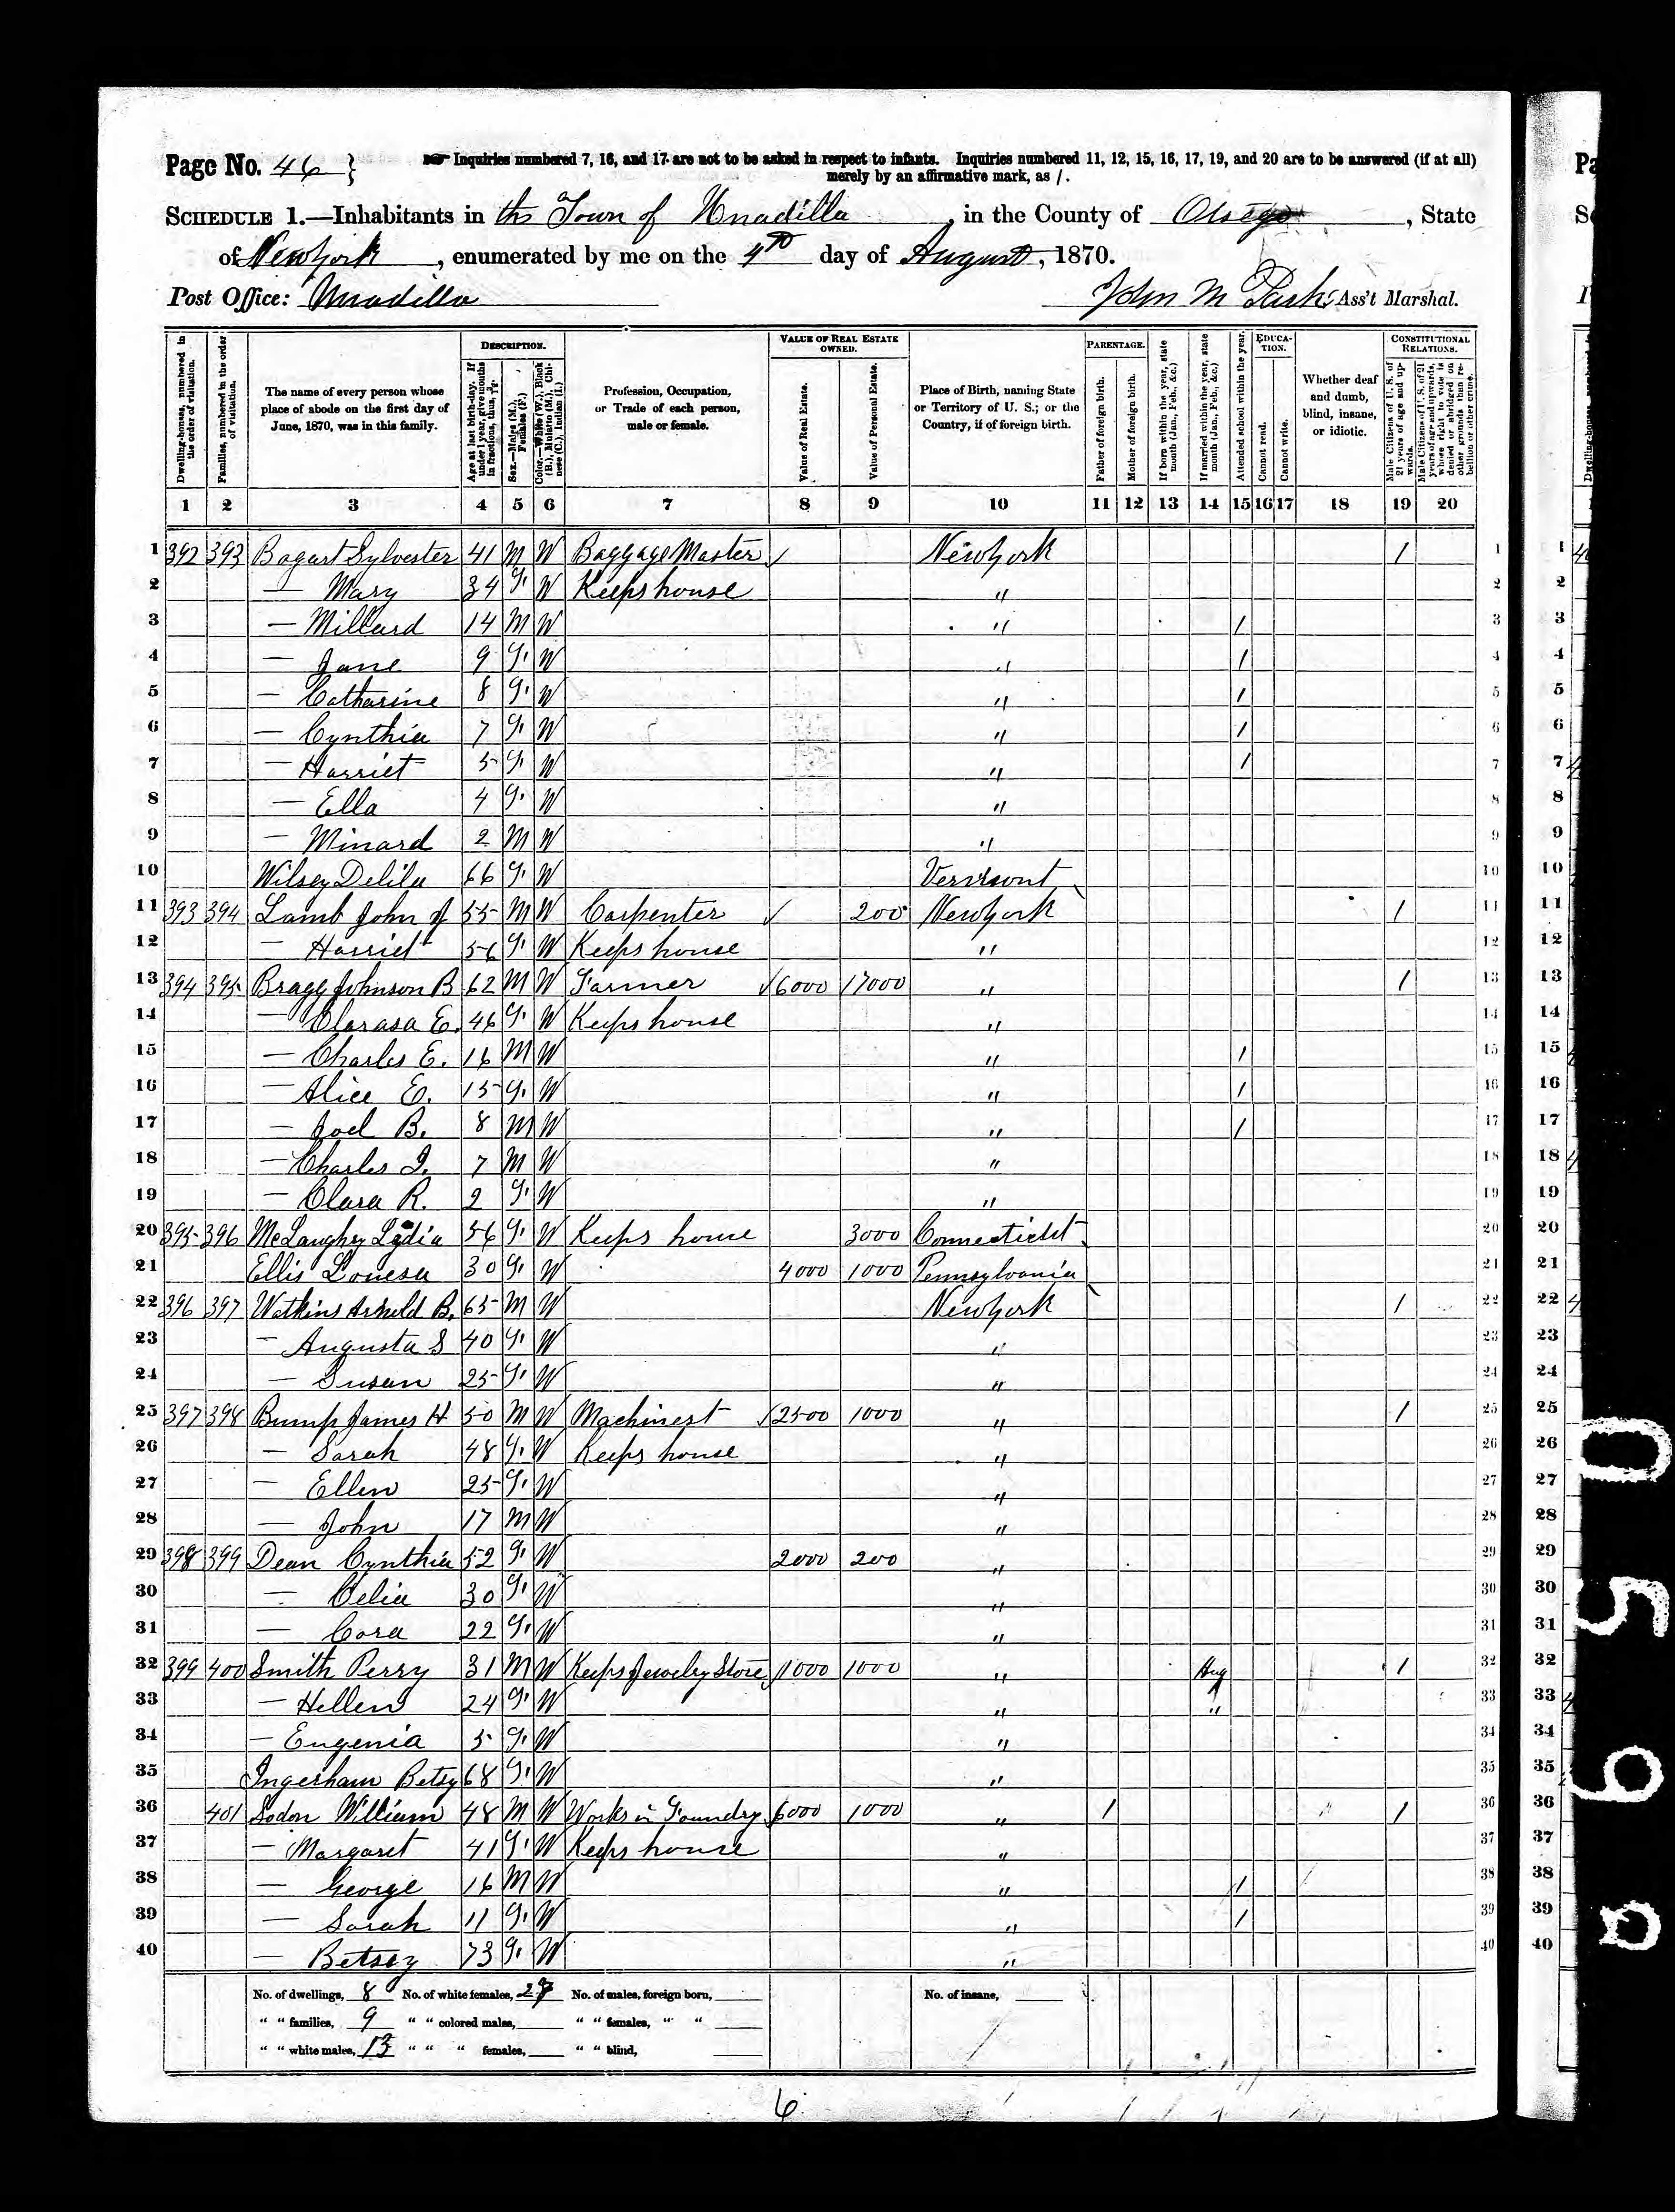 Page No. 46 } Inquiries numbered 7, 16, and 17 are not to be asked in respect to infants. Inquiries numbered 11, 12, 15, 16, 17, 19, and 20 are to be answered (if at all)
merely by an affirmative mark, as /.
SCHEDULE 1.—Inhabitants in the Town of Unadilla, in the County of Otsego, State
of New York, enumerated by me on the 4th day of August, 1870.
Post Office: Unadilla John M Ass't Marshal.
Dwelling-houses, numbered in the order of visitation.
Families, numbered in the order of visitation.
The name of every person whose place of abode on the first day of June, 1870, was in this family.
DESCRIPTION.
Age at last birth-day. If under 1 year, give months in fractions, thus, 3/12.
Sex.—Males (M.), Females (F.)
Color.—White (W.), Black (B.), Mulatto (M.), Chinese (C.), Indian (I.)
Profession, Occupation, or Trade of each person, male or female.
VALUE OF REAL ESTATE OWNED.
Value of Real Estate.
Value of Personal Estate.
Place of Birth, naming State or Territory of U. S.; or the Country, if of foreign birth.
PARENTAGE.
Father of foreign birth.
Mother of foreign birth.
If born within the year, state month (Jan., Feb., &c.)
If married within the year, state month (Jan., Feb., &c.)
Attended school within the year.
EDUCATION.
Cannot read.
Cannot write.
Whether deaf and dumb, blind, insane, or idiotic.
CONSTITUTIONAL RELATIONS.
Male Citizens of U. S. of 21 years of age and upwards.
Male Citizens of U. S. of 21 years of age and upwards, whose right to vote is denied or abridged on other grounds than rebellion or other crime.
1 2 3 4 5 6 7 8 9 10 11 12 13 14 15 16 17 18 19 20
1 392 393 Bogart Sylvester 41 M W Baggage Master New York / 1
2 — Mary 34 F. W Keeps house " 2
3 — Millard 14 M W " / 3
4 — Jane 9 F. W " / 4
5 — Catharine 8 F. W " / 5
6 — Cynthia 7 F. W " / 6
7 — Harriet 5 F. W " / 7
8 — Ella 4 F. W " 8
9 — Minard 2 M W " 9
10 Wilsey Delila 66 F. W Vermont 10
11 393 394 Lamb John J 55 M W Carpenter 200 New York / 11
12 — Harriet 56 F. W Keeps house " 12
13 394 395 Bragg Johnson B 62 M W Farmer 6000 17000 " / 13
14 — Clarasa E. 46 F. W Keeps house " 14
15 — Charles E. 16 M W " / 15
16 — Alice E. 15 F. W " / 16
17 — Joel B. 8 M W " / 17
18 — Charles I. 7 M W " 18
19 — Clara R. 2 F. W " 19
20 395 396 McLaughry Lydia 56 F. W Keeps house 3000 Connecticut 20
21 Ellis Louesa 30 F. W 4000 1000 Pennsylvania 21
22 396 397 Watkins Arnold B. 65 M W New York / 22
23 — Augusta S 40 F. W " 23
24 — Susan 25 F. W " 24
25 397 398 Bump James H 50 M W Machinest 2500 1000 " / 25
26 — Sarah 48 F. W Keeps house " 26
27 — Ellen 25 F. W " 27
28 — John 17 M W " 28
29 398 399 Dean Cynthia 52 F. W 2000 200 " 29
30 — Celia 30 F. W " 30
31 — Cora 22 F. W " 31
32 399 400 Smith Perry 31 M W Keeps Jewelry Store 1000 1000 " Aug / 32
33 — Hellen 24 F. W " " 33
34 — Eugenia 5 F. W " 34
35 Ingersham Betsy 68 F. W " 35
36 401 Sodon William 48 M W Works in Foundry 6000 1000 " / / 36
37 — Margaret 41 F. W Keeps house " 37
38 — George 16 M W " / 38
39 — Sarah 11 F. W " / 39
40 — Betsey 73 F. W " 40
No. of dwellings, 8 No. of white females, 27 No. of males, foreign born, No. of insane,
" " families, 9 " " colored males, " " females, " "
" " white males, 13 " " " females, " " blind,
6
0569